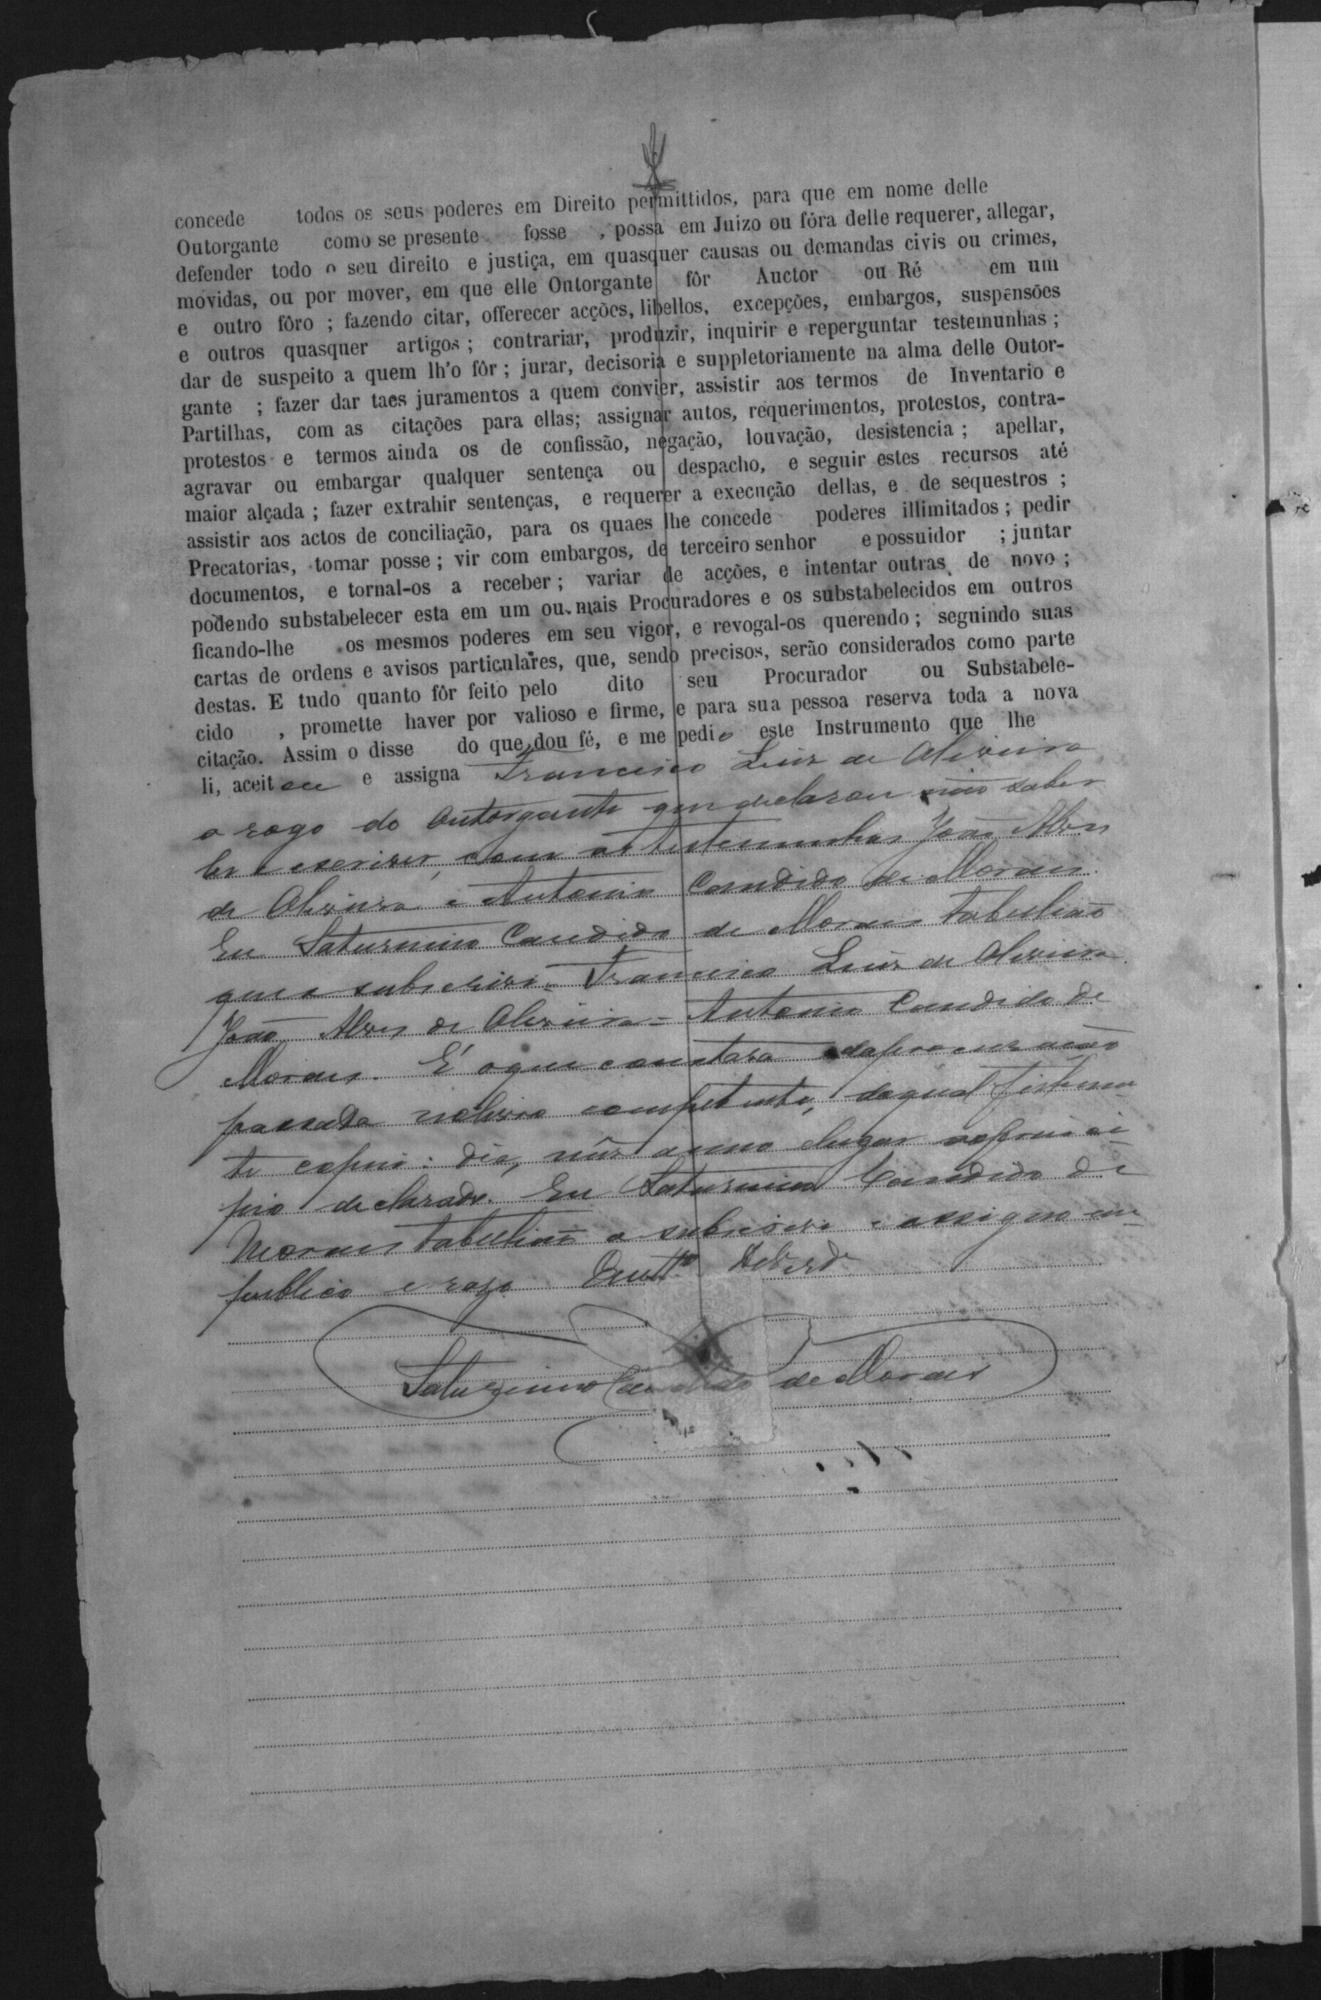 concede todos os seus poderes em Direito permittidos, para que em nome delle
Outorgante como se presente fosse , possa em Juizo ou fóra delle requerer, allegar,
defender todo o seu direito e justiça, em quasquer causas ou demandas civis ou crimes,
movidas, ou por mover, em que elle Outorgante fôr Auctor ou Ré em um
e outro fôro ; fazendo citar, offerecer acções, libellos, excepções, embargos, suspensões
e outros quasquer artigos ; contrariar, produzir, inquirir e reperguntar testemunhas ;
dar de suspeito a quem lh'o fôr ; jurar, decisoria e suppletoriamente na alma delle Outor-
gante ; fazer dar taes juramentos a quem convier, assistir aos termos de Inventario e
Partilhas, com as citações para ellas; assignar autos, requerimentos, protestos, contra-
protestos e termos ainda os de confissão, negação, louvação, desistencia ; apellar,
agravar ou embargar qualquer sentença ou despacho, e seguir estes recursos até
maior alçada ; fazer extrahir sentenças, e requerer a execução dellas, e de sequestros ;
assistir aos actos de conciliação, para os quaes lhe concede poderes illimitados ; pedir
Precatorias, tomar posse ; vir com embargos, de terceiro senhor e possuidor ; juntar
documentos, e tornal-os a receber ; variar de acções, e intentar outras de novo ;
podendo substabelecer esta em um ou mais Procuradores e os substabelecidos em outros
ficando-lhe os mesmos poderes em seu vigor, e revogal-os querendo ; seguindo suas
cartas de ordens e avisos particulares, que, sendo precisos, serão considerados como parte
destas. E tudo quanto fôr feito pelo dito seu Procurador ou Substabele-
cido , promette haver por valioso e firme, e para sua pessoa reserva toda a nova
citação. Assim o disse do que dou fé, e me pedio este Instrumento que lhe
li, aceitou e assigna Francisco Luiz de Oliveira
a rogo do Outorgante que declarou não saber
ler e escrever, com as testemunhas João Alves
de Oliveira e Antonio Candido de Moraes.
Eu Saturnino Candido de Moraes tabelião
que o subscrevi = Francisco Luiz de Oliveira.
João Alves de Oliveira = Antonio Candido de
Moraes. É o que constava da procuração
passada no livro competente, da qual fiz tirar
te copia: dia, mez anno e lugar no princi-
pio declarado. Eu Saturnino Candido de
Moraes tabelião o subscrevi e assigno em
publico e razo
Saturnino Candido de Moraes